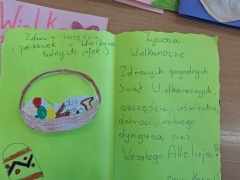 Wielk
Zdrowia szczęścia
i pisanek i w Wielkanoc
Życzenia
Wielkanocne
Zdrowych pogodnych
Świąt Wielkanocnych,
szczęścia, uśmiechu,
dobroci, mokrego
dyngusa oraz
Wesołego Alleluja!